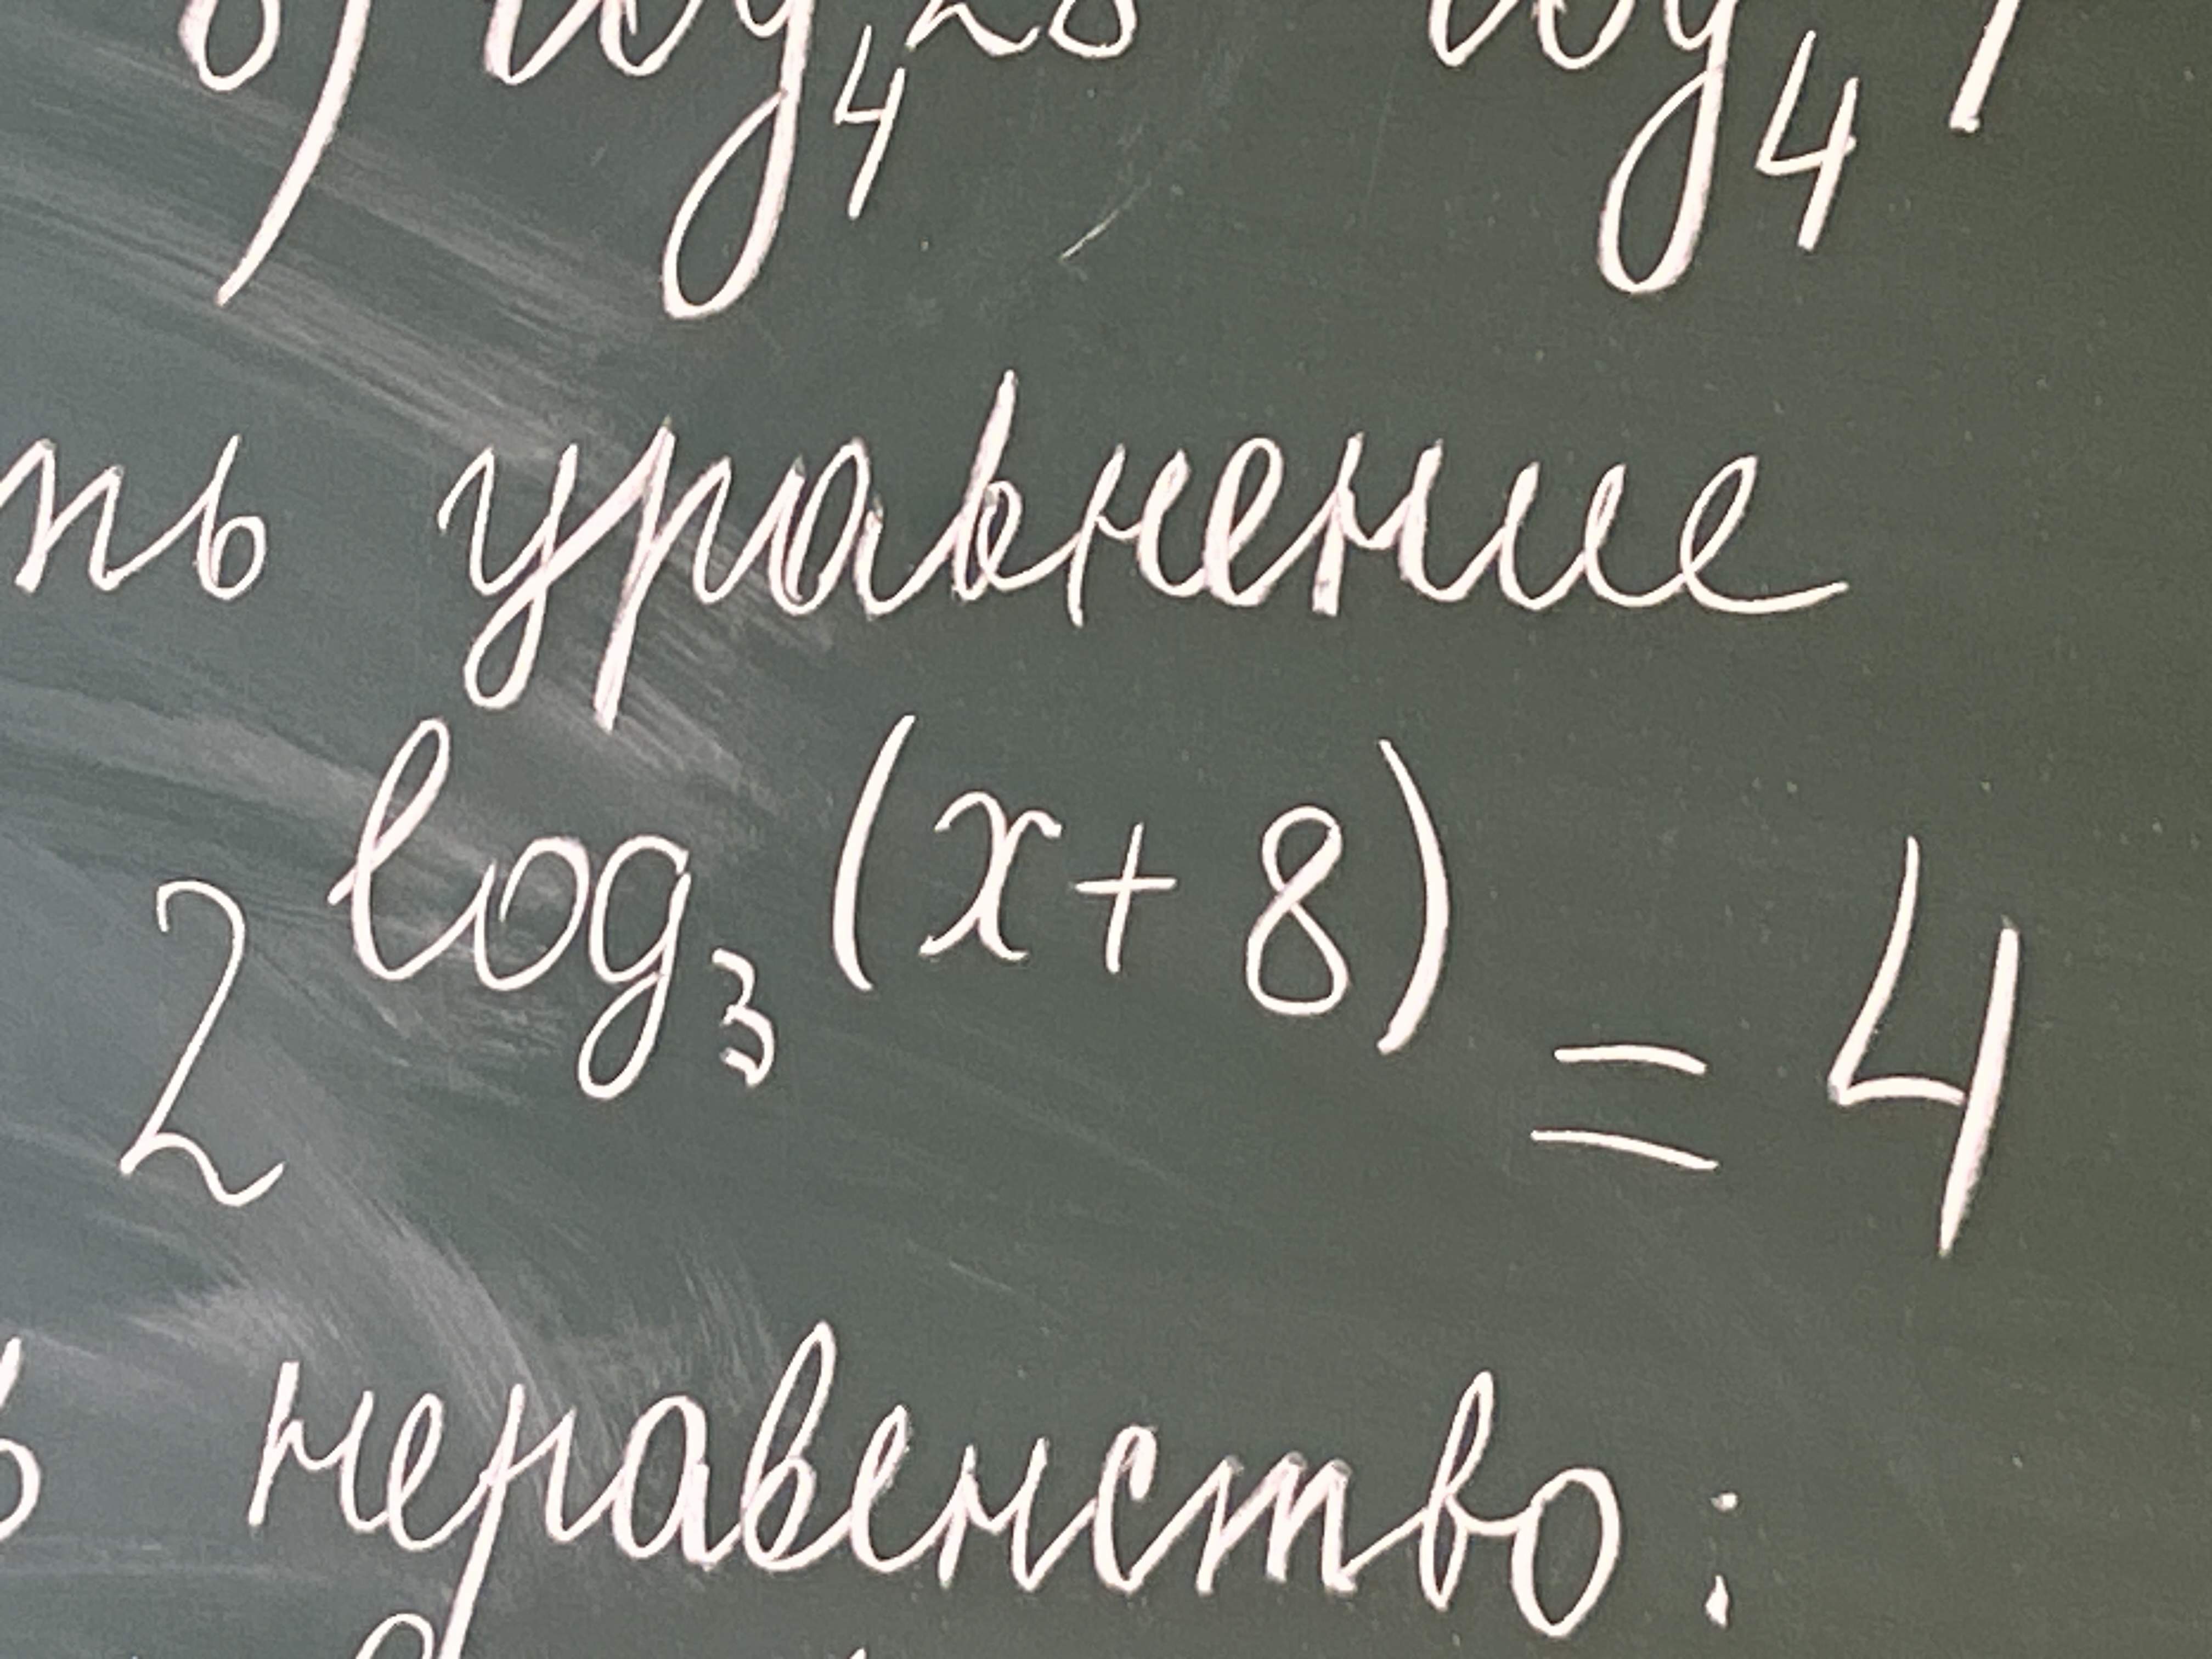 б) log₄28 log₄7
ть уравнение
2^log₃(x+8) = 4
ь неравенство: